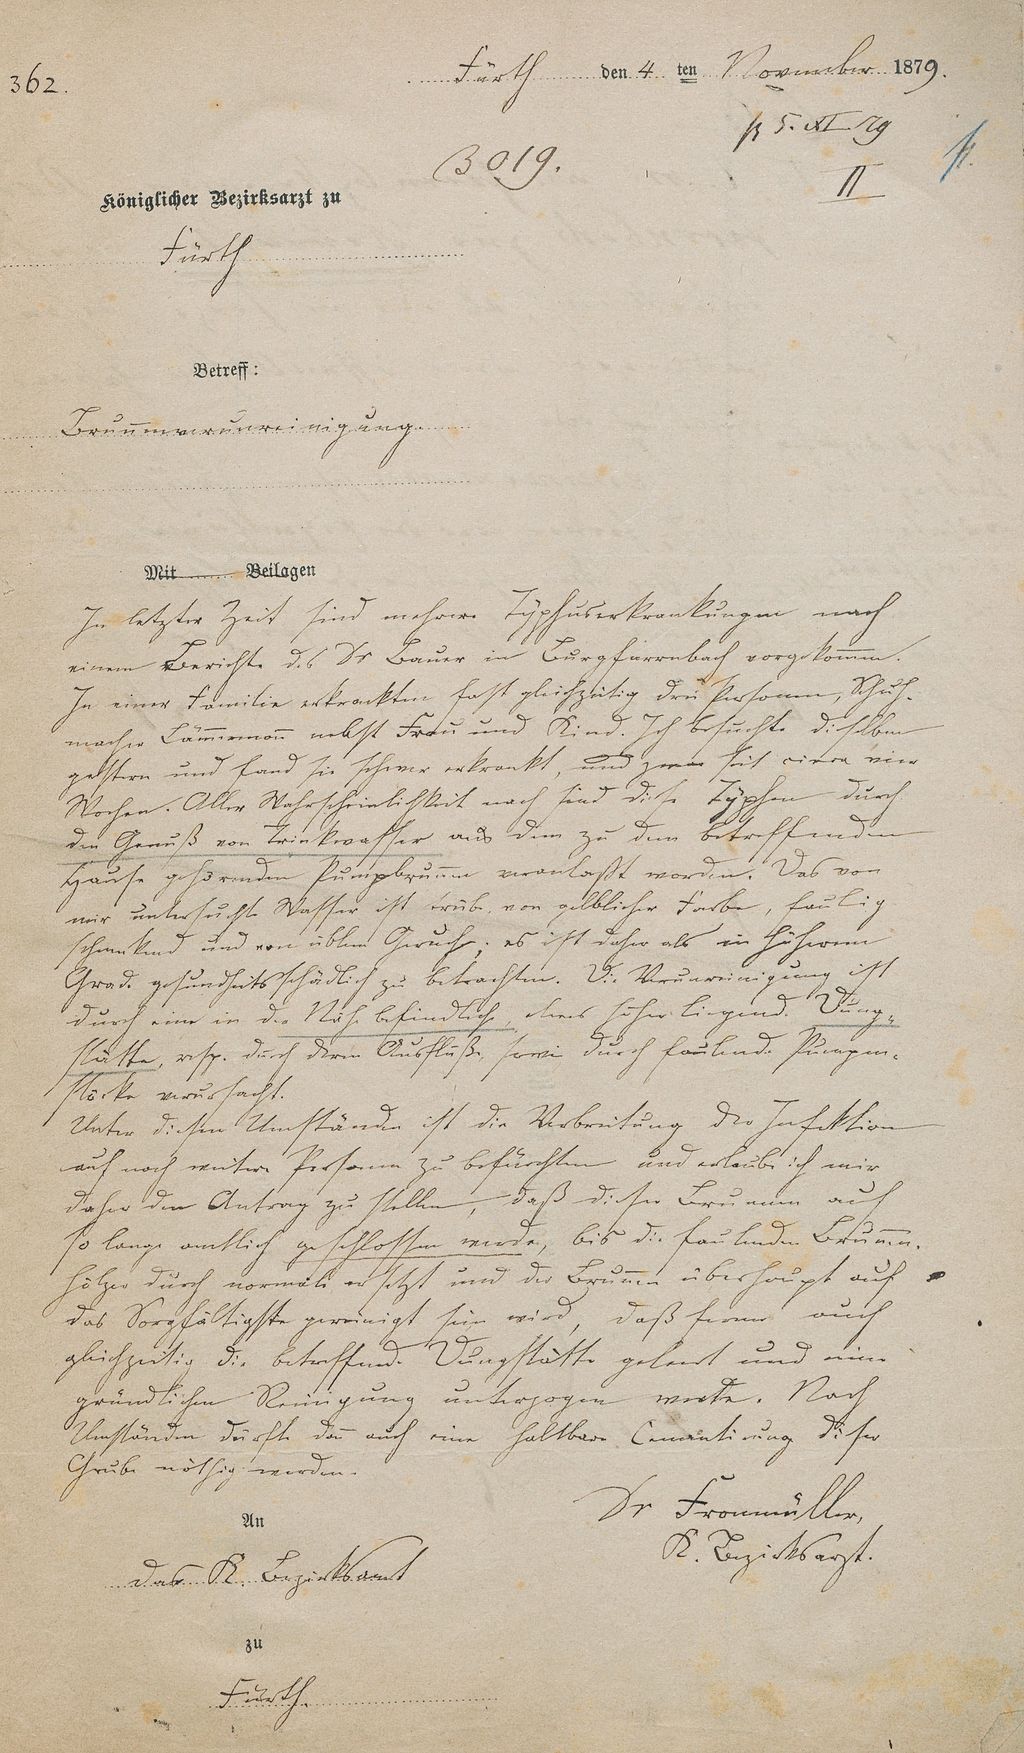 362.
Fürth den 4 ten November 1879.
5. XI 79
3019.
II
Königlicher Bezirksarzt zu
Fürth
Betreff:
Brunnenverunreinigung.
Mit Beilagen
In letzter Zeit sind mehrere Typhuserkrankungen nach
einem Berichte des Dr Bauer in Burgfarrnbach vorgekommen.
In einer Familie erkrankten fast gleichzeitig drei Personen, Schuh-
macher Lämmermann nebst Frau und Kind. Ich besuchte dieselben
gestern und fand sie schwer erkrankt, und zwar seit circa vier
Wochen. Aller Wahrscheinlichkeit nach sind diese Typhen durch
den Genuß von Trinkwasser aus dem zu dem betreffenden
Hause gehörenden Pumpbrunnen veranlaßt worden. Das von
mir untersuchte Wasser ist trübe, von gelblicher Farbe, faulig
schmeckend und von üblem Geruch; es ist daher als in höherem
Grade gesundheitsschädlich zu betrachten. Die Verunreinigung ist
durch eine in der Nähe befindliche, etwas höher liegende Dung-
stätte, resp. durch deren Ausfluß, sowie durch faulende Pumpen-
stöcke verursacht.
Unter diesen Umständen ist die Verbreitung der Infektion
auf noch weitere Personen zu befürchten und erlaube ich mir
daher den Antrag zu stellen, daß dieser Brunnen auf
so lange amtlich geschlossen werde, bis die faulenden Brunnen-
hölzer durch normale ersetzt und der Brunnen überhaupt auf
das Sorgfältigste gereinigt sein wird, daß ferner auch
gleichzeitig die betreffende Dungstätte geleert und einer
gründlichen Reinigung unterzogen werde. Nach
Umständen dürfte dann auch eine haltbare Cementirung dieser
Grube nöthig werden.
Dr Fronmüller,
K. Bezirksarzt.
An
das K. Bezirksamt
zu
Fürth.